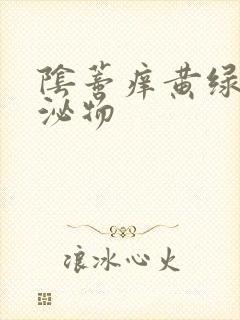 陰蒂痒黄绿
泌物
浪冰心火